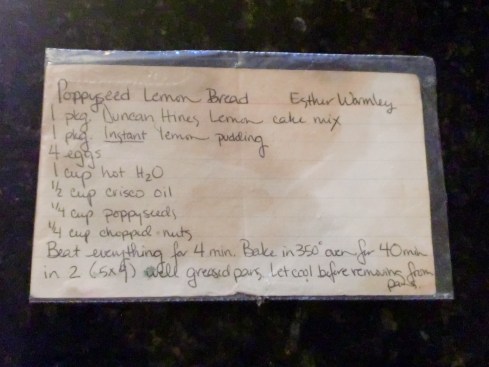 Poppyseed Lemon Bread Esther Warmley
1 pkg. Duncan Hines Lemon cake mix
1 pkg. Instant lemon pudding
4 eggs
1 cup hot H2O
1/2 cup crisco oil
1/4 cup poppyseeds
1/4 cup chopped nuts
Beat everything for 4 min. Bake in 350° oven for 40 min
in 2 (5x9) well greased pans. Let cool before removing from
pans.